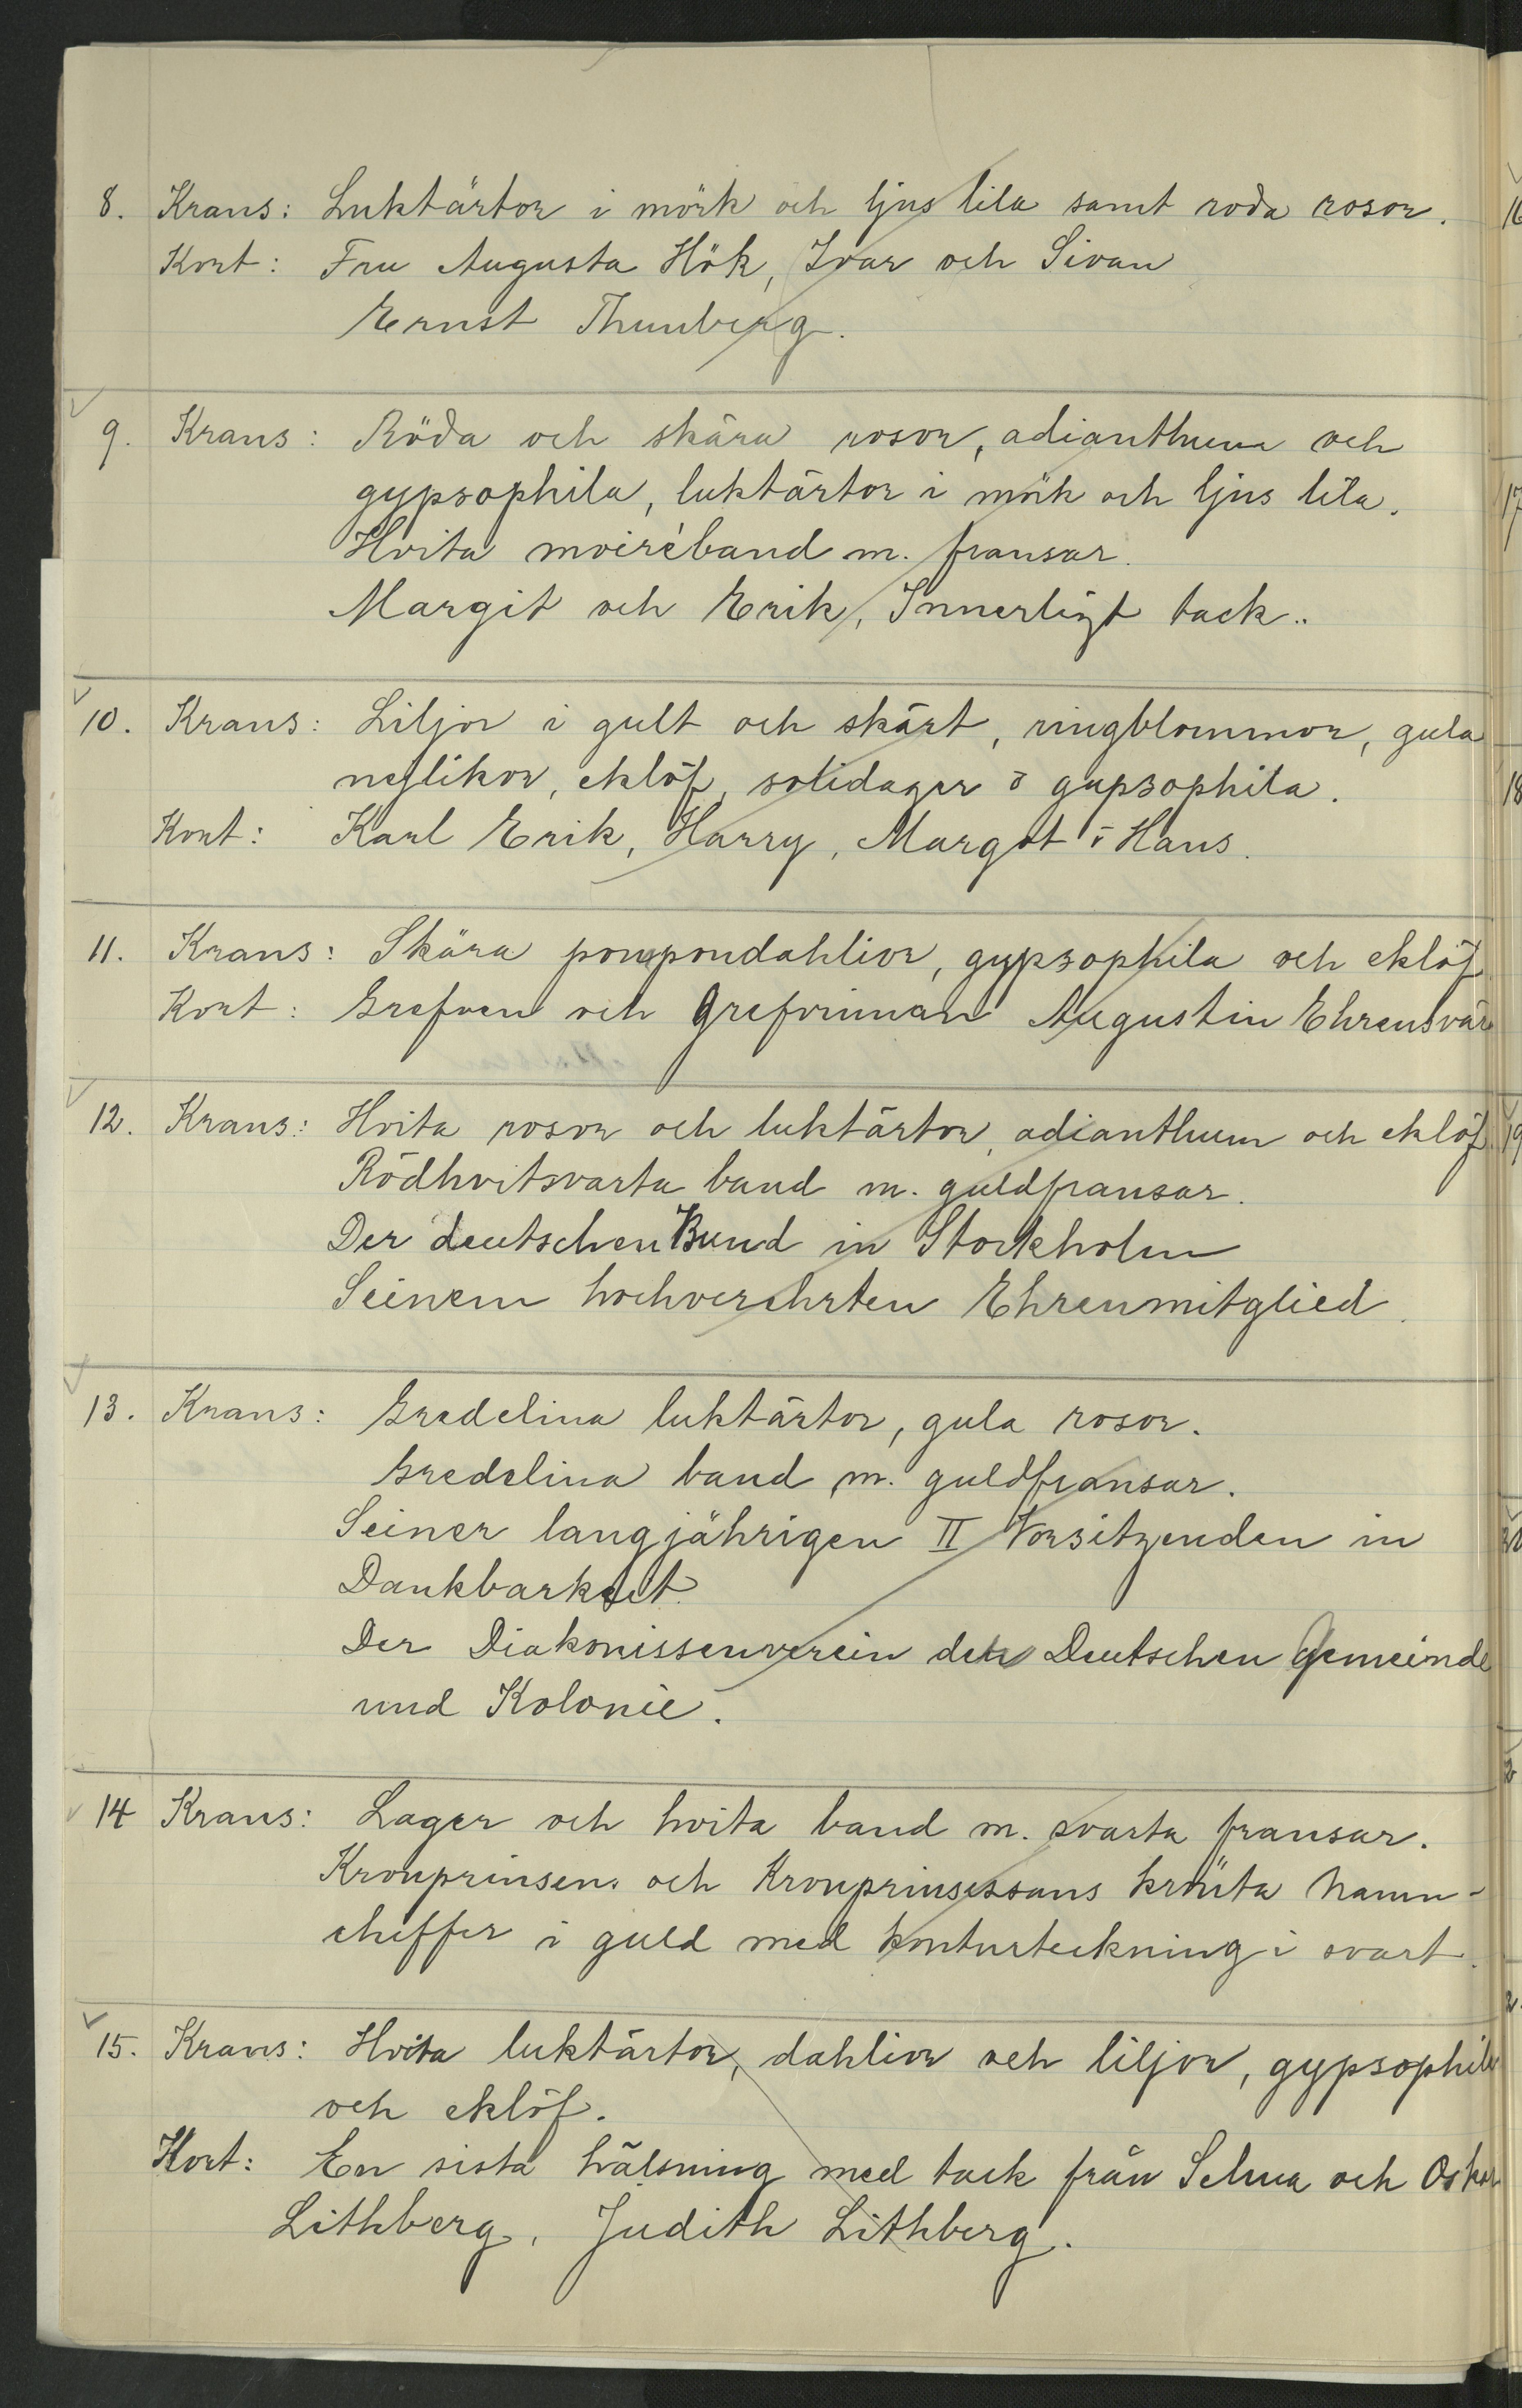 8. Krans: Luktärtor i mörk och ljus lila samt roda rosor.
Kort: Fru Augusta Hök, Ivar och Sivan
Ernst Thunberg.
9. Krans: Röda och skära rosor, adianthum och
gypsophila, luktärtor i mörk och ljus lila.
Hvita moiréband m. fransar.
Margit och Erik, Innerligt tack..
10. Krans: Liljor i gult och skärt, ringblommor, gula
neglikor, eklöf, solidager o gypsophila.
Kort: Karl Erik, Harry, Margot o Hans.
11. Krans: Skära pompondahlior, gypsophila och eklöf
Kort: Grefven och Grefvinnan Augustin Ehrensvär
12. Krans: Hvita rosor och luktärtor, adianthum och eklöf
Rödhvitsvarta band m. guldfransar.
Der deutschen Bund in Stockholm
Seinem hochverehrten Ehrenmitglied.
13. Krans: Gredelina luktärtor, gula rosor.
Gredelina band m. guldfransar.
Seiner langjährigen II Vorsitzenden in
Dankbarkeit.
Der Diakonissenverein der Deutschen Gemeinde
und Kolonie.
14 Krans: Lager och hvita band m. svarta fransar.
Kronprinsens och Kronprinsessans krönta namn-
cheffer i guld med konturteckning i svart.
15. Krans: Hvita luktärtor, dahlior och liljor, gypsophila
och eklöf.
Kort: En sista hälsning med tack från Selma och Oskar
Lithberg, Judith Lithberg.
16
17
18
19